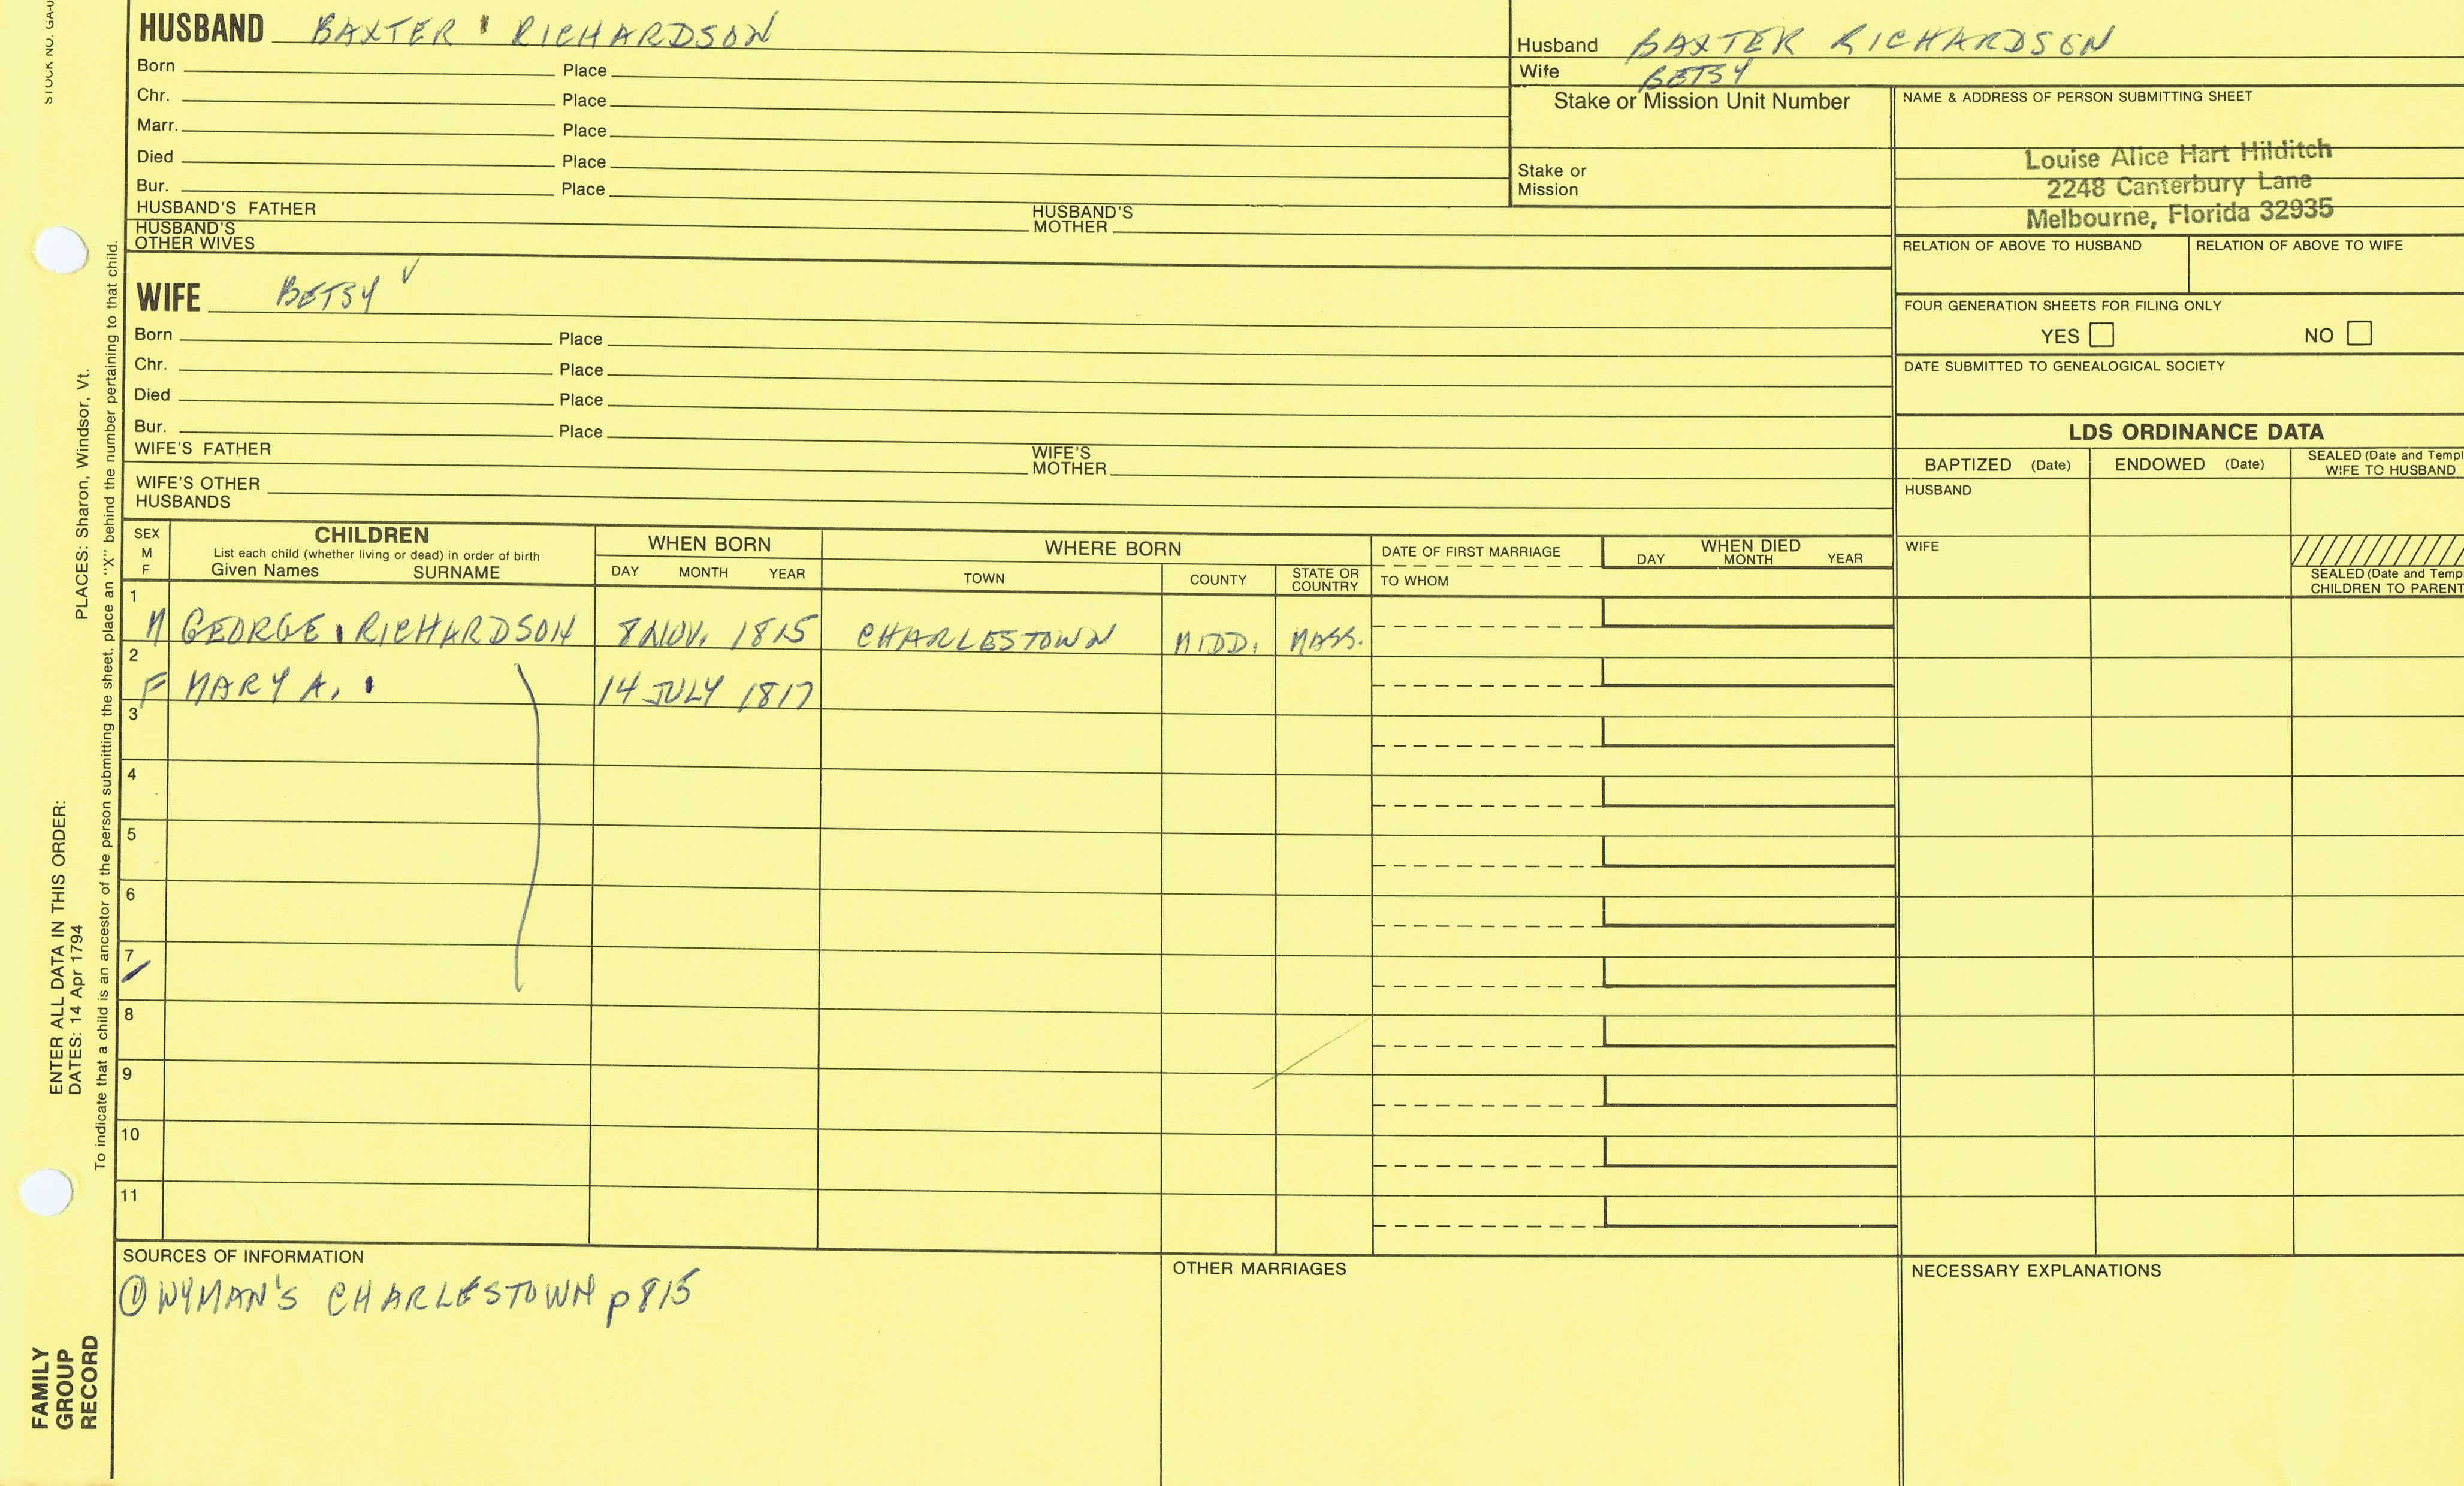 STOCK NO. GA-0
HUSBAND BAXTER RICHARDSON
Born Place
Chr. Place
Marr. Place
Died Place
Bur. Place
HUSBAND'S FATHER HUSBAND'S MOTHER
HUSBAND'S OTHER WIVES
Husband BAXTER RICHARDSON
Wife BETSY
Stake or Mission Unit Number
Stake or Mission
NAME & ADDRESS OF PERSON SUBMITTING SHEET
Louise Alice Hart Hilditch
2248 Canterbury Lane
Melbourne, Florida 32935
RELATION OF ABOVE TO HUSBAND RELATION OF ABOVE TO WIFE
FOUR GENERATION SHEETS FOR FILING ONLY
YES NO
DATE SUBMITTED TO GENEALOGICAL SOCIETY
WIFE BETSY
Born Place
Chr. Place
Died Place
Bur. Place
WIFE'S FATHER WIFE'S MOTHER
WIFE'S OTHER HUSBANDS
LDS ORDINANCE DATA
BAPTIZED (Date) ENDOWED (Date) SEALED (Date and Templ
WIFE TO HUSBAND
HUSBAND
WIFE
SEALED (Date and Temp
CHILDREN TO PARENT
SEX M F
CHILDREN
List each child (whether living or dead) in order of birth
Given Names SURNAME
WHEN BORN
DAY MONTH YEAR
WHERE BORN
TOWN COUNTY STATE OR COUNTRY
DATE OF FIRST MARRIAGE
TO WHOM
WHEN DIED
DAY MONTH YEAR
1
M GEORGE RICHARDSON 8 NOV. 1815 CHARLESTOWN MIDD. MASS.
2
F MARY A. 14 JULY 1817
3
4
5
6
7
8
9
10
11
SOURCES OF INFORMATION
① WYMAN'S CHARLESTOWN p 815
OTHER MARRIAGES
NECESSARY EXPLANATIONS
PLACES: Sharon, Windsor, Vt.
ENTER ALL DATA IN THIS ORDER:
DATES: 14 Apr 1794
To indicate that a child is an ancestor of the person submitting the sheet, place an "X" behind the number pertaining to that child.
FAMILY
GROUP
RECORD